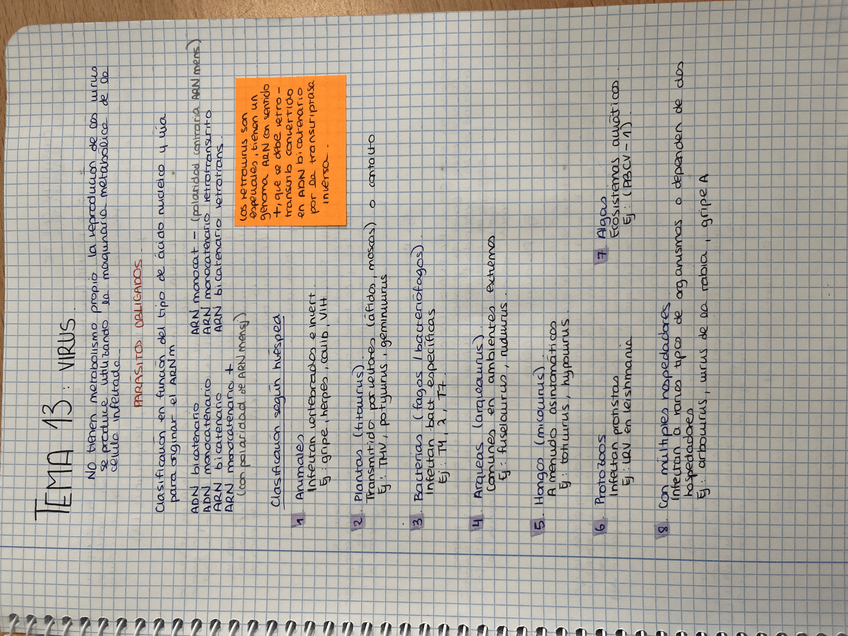 TEMA 13: VIRUS.
NO tienen metabolismo propio, la reproducción de los virus
se produce utilizando la maquinaria metabólica de la
célula infectada.
PARÁSITOS OBLIGADOS.
Clasificación en función del tipo de ácido nucleico y vía
para originar el ARNm
ADN bicatenario
ADN monocatenario
ARN bicatenario
ARN monocatenario +
(con polaridad de ARN mens)
ARN monocat - (polaridad contraria ARN mens)
ARN monocatenario retrotranscrito
ARN bicatenario retrotrans.
Los retrovirus son
especiales, tienen un
genoma ARN con sentido
+, que se debe retro-
transcrib convertido
en ADN bicatenario
por la transcriptasa
inversa.
Clasificación según huésped
1 Animales
Infectan vertebrados e invert
Ej: gripe, herpes, covid, VIH
2. Plantas (fitovirus)
Transmitido por vectores (áfidos, moscas) o contacto
Ej: TMV, potyvirus, geminivirus
3. Bacterias (fagos / bacteriófagos)
Infectan bact específicas
Ej: T4, λ, T7.
4 Arqueas (arqueovirus)
Comunes en ambientes extremos
Ej: fusellovirus, rudivirus.
5. Hongos (micovirus)
A menudo asintomáticos
Ej: totivirus, hypovirus
6. Protozoos
Infectan protistas
Ej: LRV en leishmania
7 Algas
Ecosistemas acuáticos.
Ej: (PBCV-1).
8 Con múltiples hospedadores
Infectan a varios tipos de organismos o dependen de dos
hospedadores
Ej: arbovirus, virus de la rabia, gripe A